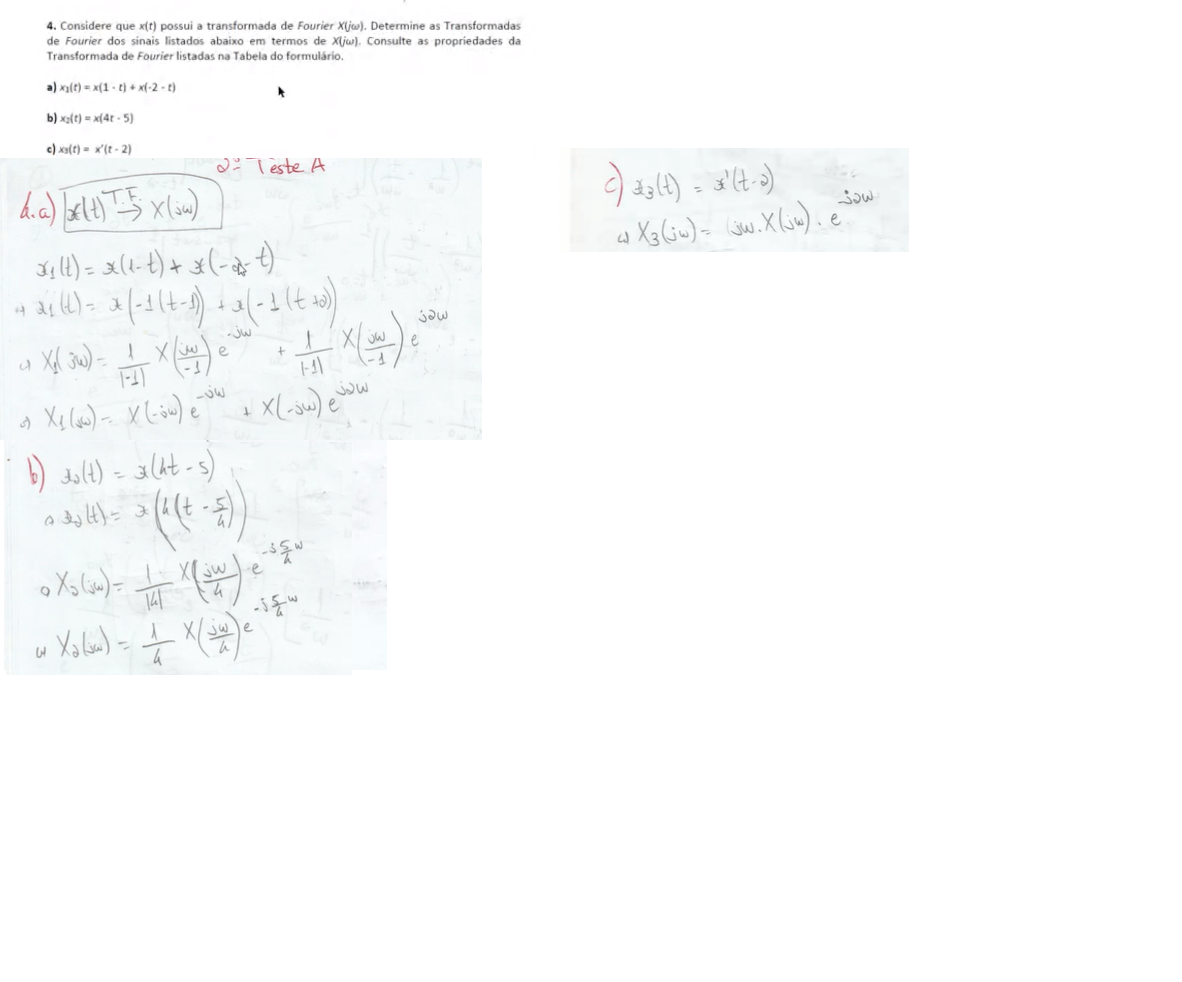 4. Considere que x(t) possui a transformada de Fourier X(jω). Determine as Transformadas
de Fourier dos sinais listados abaixo em termos de X(jω). Consulte as propriedades da
Transformada de Fourier listadas na Tabela do formulário.
a) x₁(t) = x(1 - t) + x(-2 - t)
b) x₂(t) = x(4t - 5)
c) x₃(t) = x'(t - 2)
2º Teste A
4.a) x(t) T.F. → X(jω)
x₁(t) = x(1-t) + x(-2-t)
⇒ x₁(t) = x(-1(t-1)) + x(-1(t+2))
⇒ X₁(jω) = 1/|-1| X(jω/-1) e^{-jω} + 1/|-1| X(jω/-1) e^{j2ω}
⇒ X₁(jω) = X(-jω) e^{-jω} + X(-jω) e^{j2ω}
b) x₂(t) = x(4t - 5)
⇒ x₂(t) = x(4(t - 5/4))
⇒ X₂(jω) = 1/|4| X(jω/4) e^{-j5/4 ω}
⇒ X₂(jω) = 1/4 X(jω/4) e^{-j5/4 ω}
c) x₃(t) = x'(t-2)
⇒ X₃(jω) = jω.X(jω) . e^{-j2ω}